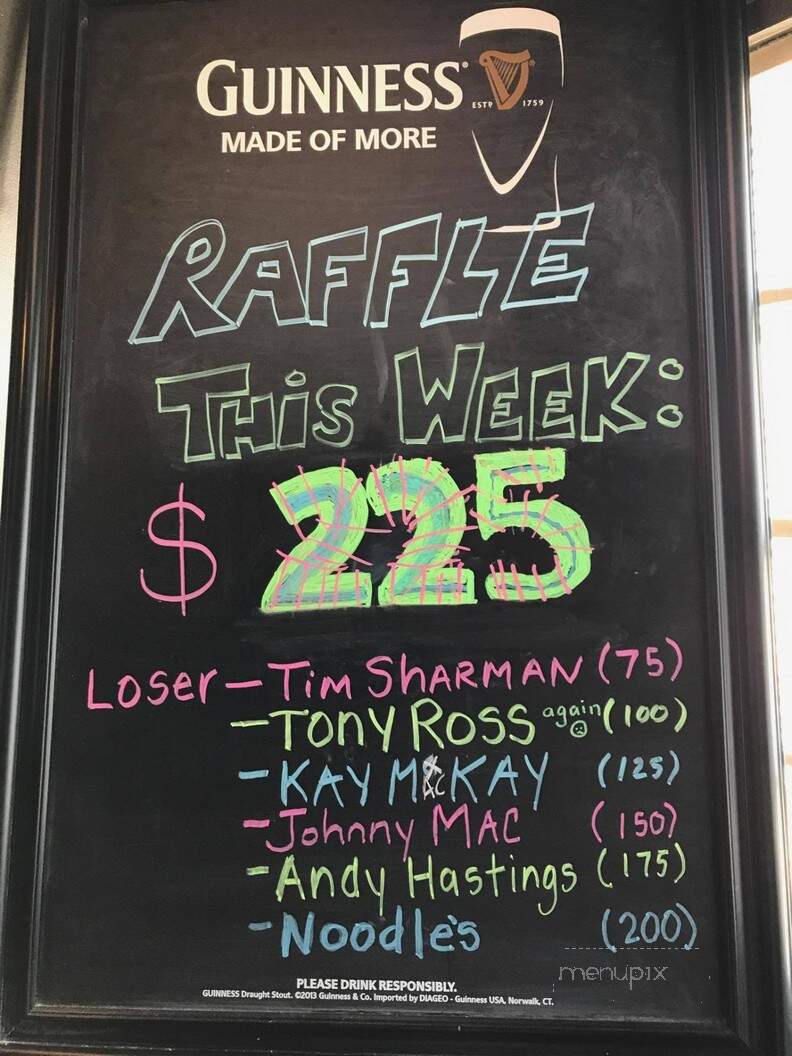 GUINNESS®
ESTD 1759
MADE OF MORE
RAFFLE
THIS WEEK:
$ 225
Loser - Tim SHARMAN (75)
- TONY ROSS again (100)
- KAY McKAY (125)
- Johnny MAC (150)
- Andy Hastings (175)
- Noodle's (200)
menupix
PLEASE DRINK RESPONSIBLY.
GUINNESS Draught Stout. ©2013 Guinness & Co. Imported by DIAGEO - Guinness USA, Norwalk, CT.